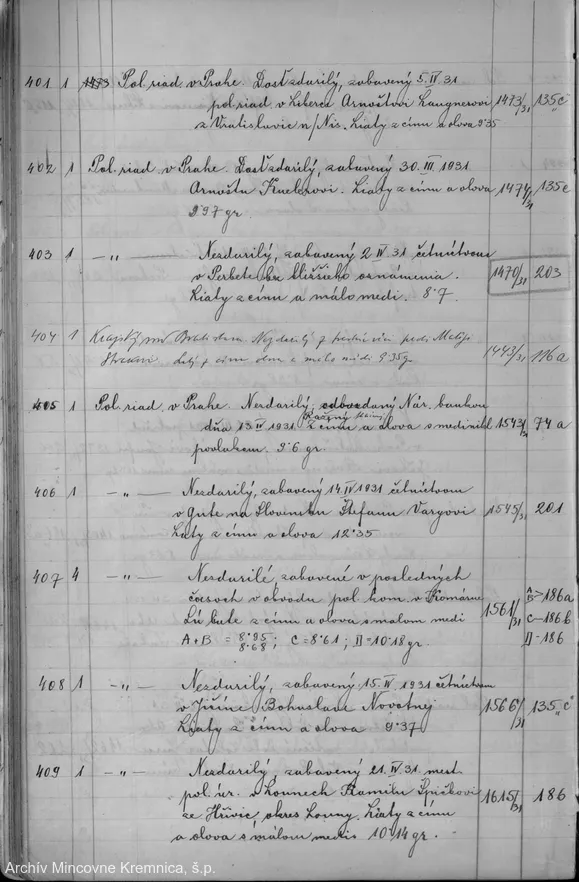 401 1 1473 Pol. riad. v Prahe. Dosť zdarilý, zabavený 5.IV.31
pol. riad v Liberce Arnoštovi Langnerovi 1473/31 135 „c"
z Vratislavic n/Nis. Liaty z cínu a olova 9·35
402 1 Pol. riad v Prahe. Dosť zdarilý, zabavený 30.III.1931
Arnoštu Knoblovi. Liaty z cínu a olova 1474/31 135 c
9·97 gr.
403 1 —„— Nezdarilý, zabavený 2.IV.31 četníctvom
v Perbete bez bližšieho oznámenia. 1470/31 203
Liaty z cínu a málo medi. 8·7.
404 1 Krajský súd Bratislava. Nezdarilý z trestnej veci proti Matěji
Liaty z cínu olova a malo médi 9·35g 1443/31 116a
405 1 Pol. riad. v Prahe. Nezdarilý, odovzdaný Nár. bankou
dňa 13.IV.1931 Ražený z cínu a olova s mediním 1543/31 74 a
povlakem. 9·6 gr.
406 1 —„— Nezdarilý, zabavený 14.IV.1931 četníctvom
v Gute na Slovensku Štefanu Vargovi 1545/31 201
Liaty z cínu a olova 12·35
407 4 —„— Nezdarilé, zabavené v posledných
časoch v obvodu pol. kom. v Komárne 1561/31 A B > 186a
Sú bule z cínu a olova s malom medi C—186b
A+B = 8·95 8·68; C=8·61; II=10·18 gr. II-186
408 1 —„— Nezdarilý, zabavený 15.IV.1931 četníctvom
v Jičíne Bohuslave Novotnej 1566/31 135 „c"
Liaty z cínu a olova 9·37.
409 1 —„— Nezdarilý, zabavený 21.IV.31 mest.
pol. úr. v Lounech Kamilu Špičkovi 1615/31 186
ze Hřivic, okres Louny. Liaty z cínu
a olova s málom medi 10·14 gr.
Archív Mincovne Kremnica, š.p.